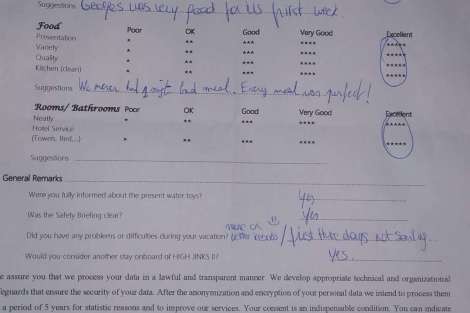 Suggestions Georges was very good for us first week.
Food Poor OK Good Very Good Excellent
Presentation * ** *** **** *****
Variety * ** *** **** *****
Quality * ** *** **** *****
Kitchen (clean) * ** *** **** *****
Suggestions We never had a bad meal. Every meal was perfect!
Rooms/ Bathrooms Poor OK Good Very Good Excellent
Neatly * ** *** **** *****
Hotel Service
(Towels, Bed,...) * ** *** **** *****
Suggestions
General Remarks
Were you fully informed about the present water toys? yes
Was the Safety Briefing clear? yes
Did you have any problems or difficulties during your vacation? / first three days not sailing..
Would you consider another stay onboard of HIGH JINKS II? yes.
e assure you that we process your data in a lawful and transparent manner. We develop appropriate technical and organizational
feguards that ensure the security of your data. After the anonymization and encryption of your personal data we intend to process them
a period of 5 years for statistic reasons and to improve our services. Your consent is an indispensable condition. You can indicate